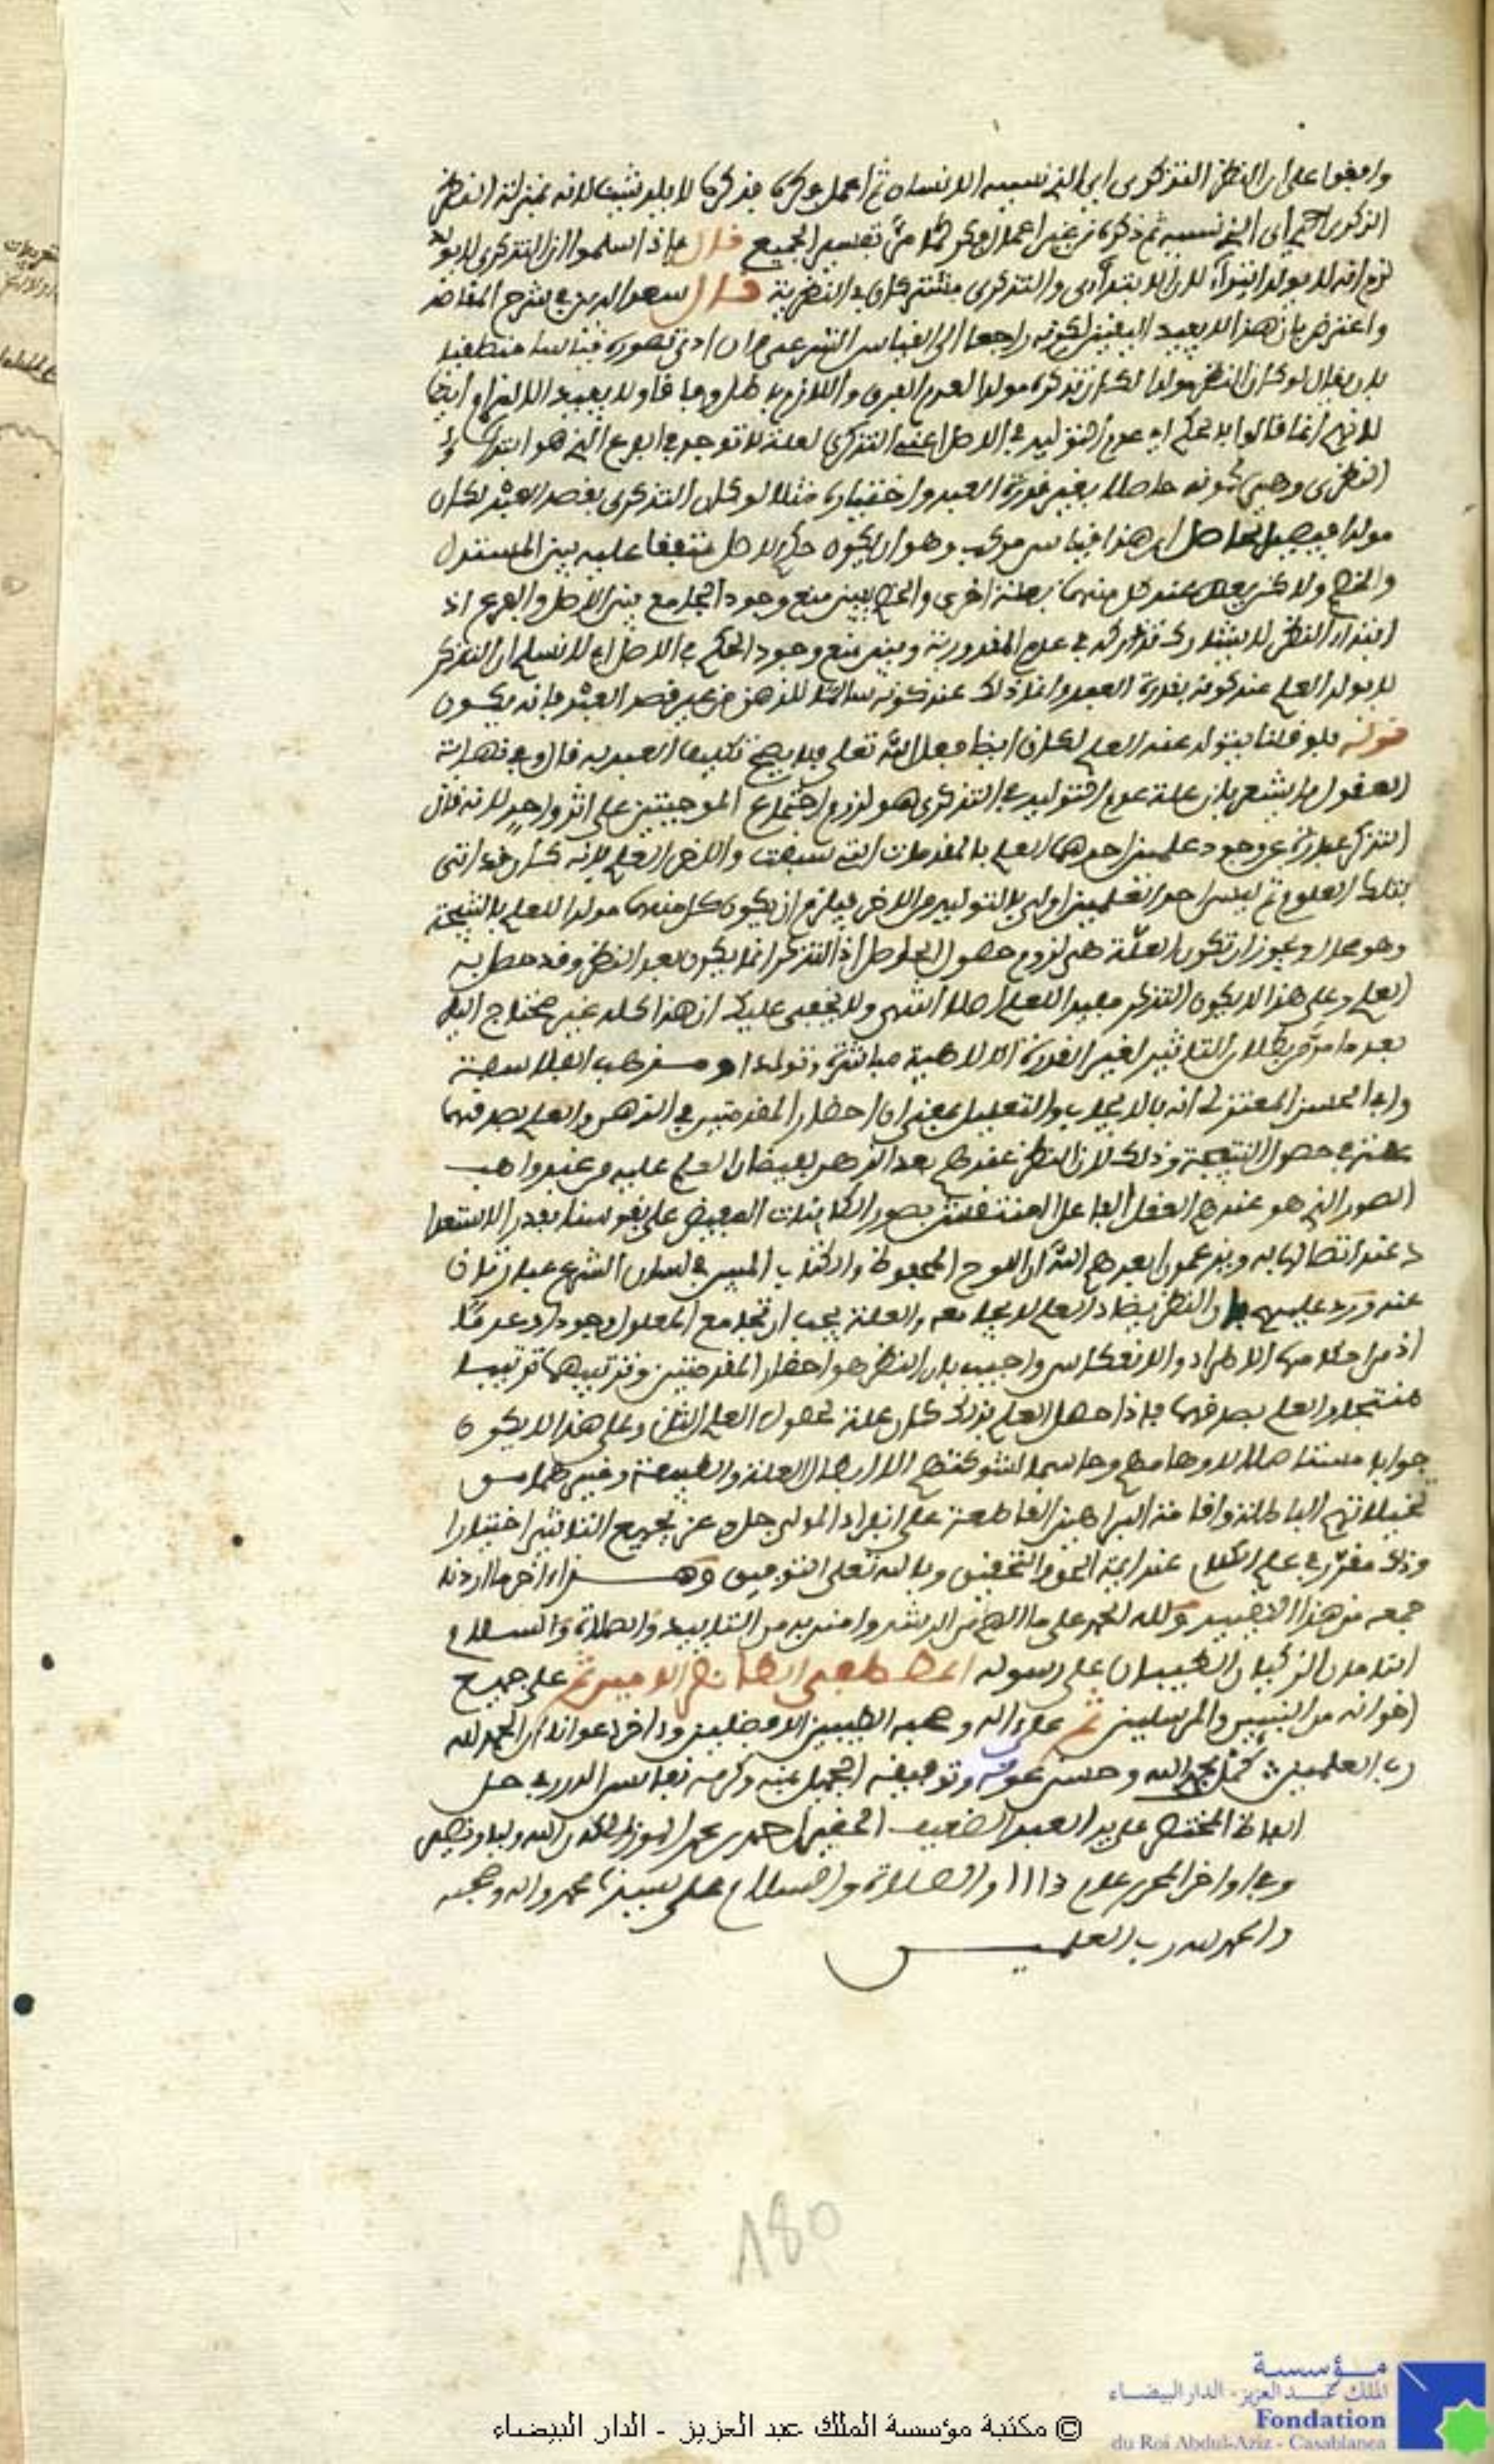 وافقوا على ان النظر التذكري اي الذي نسيه الانسان ثم اعمل فكره فذكره لا يولد شيئا لانه بمنزلة النظر
الذكري اي الذي نسيه ثم ذكره من غير اعمال فكر كما مر تفسير الجميع قال فاذا سلموا ان التذكري لا يولد
لزم انه لا يولد ابتداء لان الابتداءي والتذكري مشتركان في النظرية قال سعد الدين في شرح المقاصد
واعترض بان هذا لا يفيد اليقين لكونه راجعا الى القياس الشرعي وان ادعى تصوره قياسا منطقيا
بان يقال لو كان النظر مولدا لكان تذكره مولدا لعدم الفرق واللازم باطل وفاقا ولا يفيد الالزام ايضا
لانهم انما قالوا بالحكم اي عدم التوليد في الاصل اعني التذكري لعلة لا توجد في الفرع الذي هو ابتداء
النظري وهي كونه حاصلا بغير قدرة العبد واختياره مثلا لو كان التذكري بقصد العبد لكان
مولدا فيصل الحاصل ان هذا قياس مركب وهو ان يكون حكم الاصل متفقا عليه بين المستدل
والخصم ولاكن يعلل عند كل منهما بعلة اخرى والخصم بين منع وجود الجامع بين الاصل والفرع اذ
ابتداء النظر لا يشارك تذكره في عدم المقدورية وبين منع وجود الحكم في الاصل اي لا نسلم ان التذكر
لا يولد العلم عند كونه بقدرة العبد وانما ذلك عند كونه سانحا للذهن من غير قصد العبد فانه يكون
قوله فلو قلنا بتولد عنه العلم لكان ايضا فعل الله تعلى فلا يصح تكليف العبد به قال وفي نهاية
العقول ما يشعر بان علة عدم التوليد في التذكري هو لزوم اجتماع الموجبتين على اثر واحد لانه قال
التذكر عبارة عن وجود علمين احدهما العلم بالمقدمات التي سبقت والاخر العلم بانه كان قد اتى
بتلك العلوم ثم ليس احد العلمين اولى بالتوليد من الاخر فيلزم ان يكون كل منهما مولدا للعلم بالنتيجة
وهو محال ويجوز ان تكون العلة هي لزوم حصول الحاصل اذ التذكر انما يكون بعد النظر وقد حصل به
العلم وعلى هذا لا يكون التذكر مفيدا للعلم اصلا انتهى ولا يخفى عليك ان هذا كله غير محتاج اليه
بعد ما مر من بطلان التاثير لغير القدرة الالاهية مباشرة وتولدا ومذهب الفلاسفة
وابي الحسن المعتزلي انه بالايجاب والتعليل بمعنى ان احضار المقدمتين في الذهن والعلم بصدقهما
علة في حصول النتيجة وذلك لان النظر عندهم يعد الذهن لفيضان العلم عليه من عند واهب
الصور الذي هو عندهم العقل الفاعل المنتقش بصور الكائنات المفيض على نفوسنا بقدر الاستعدا
د عند اتصالها به ويزعمون ابعدهم الله ان اللوح المحفوظ والكتاب المبين في لسان الشرع عبارتان
عنه ورد عليهم بان النظر يضاد العلم لا يجامعه والعلة يجب ان تجامع المعلول وجودا وعدما
اذ من احكامها الاطراد والانعكاس واجيب بان النظر هو احضار المقدمتين وترتيبهما ترتيبا
منتجا والعلم بصدقهما فاذا حصل العلم بذلك كان علة لحصول العلم الثاني وعلى هذا لا يكون
جوابا مستاصلا لاوهامهم وحاسما لشوكتهم الا ابطال العلة والطبيعة وغيرهما من
تخيلاتهم الباطلة واقامة البراهين القاطعة على انفراد المولى جل وعز بجميع التاثير اختيارا
وذلك مقرر في علم الكلام عند ايمة الحق والتحقيق وبالله تعلى التوفيق وهذا اخر ما اردنا
جمعه من هذا التقييد ولله الحمد على ما الهم من الرشد وامتن به من التاييد والصلاة والسلام
التامان الزكيان الطيبان على رسوله المصطفى الطاهر الامين ثم على جميع
اخوانه من النبيين والمرسلين ثم على اله وصحبه الطيبين الافضلين وءاخر دعوانا ان الحمد لله
رب العلمين كمل بحمد الله وحسن عونه وتوفيقه الجميل بمنه وكرمه نفائس الدرر في حل
الفاظ المختصر على يد العبد الضعيف الحقير احمد بن محمد كان الله وليا ونصيرا
وفي اواخر المحرم عام 1113 والصلاة والسلام على سيدنا محمد واله وصحبه
والحمد لله رب العلمين
180
مؤسسة
الملك عبد العزيز - الدار البيضاء
Fondation
du Roi Abdul-Aziz - Casablanca
© مكتبة مؤسسة الملك عبد العزيز - الدار البيضاء